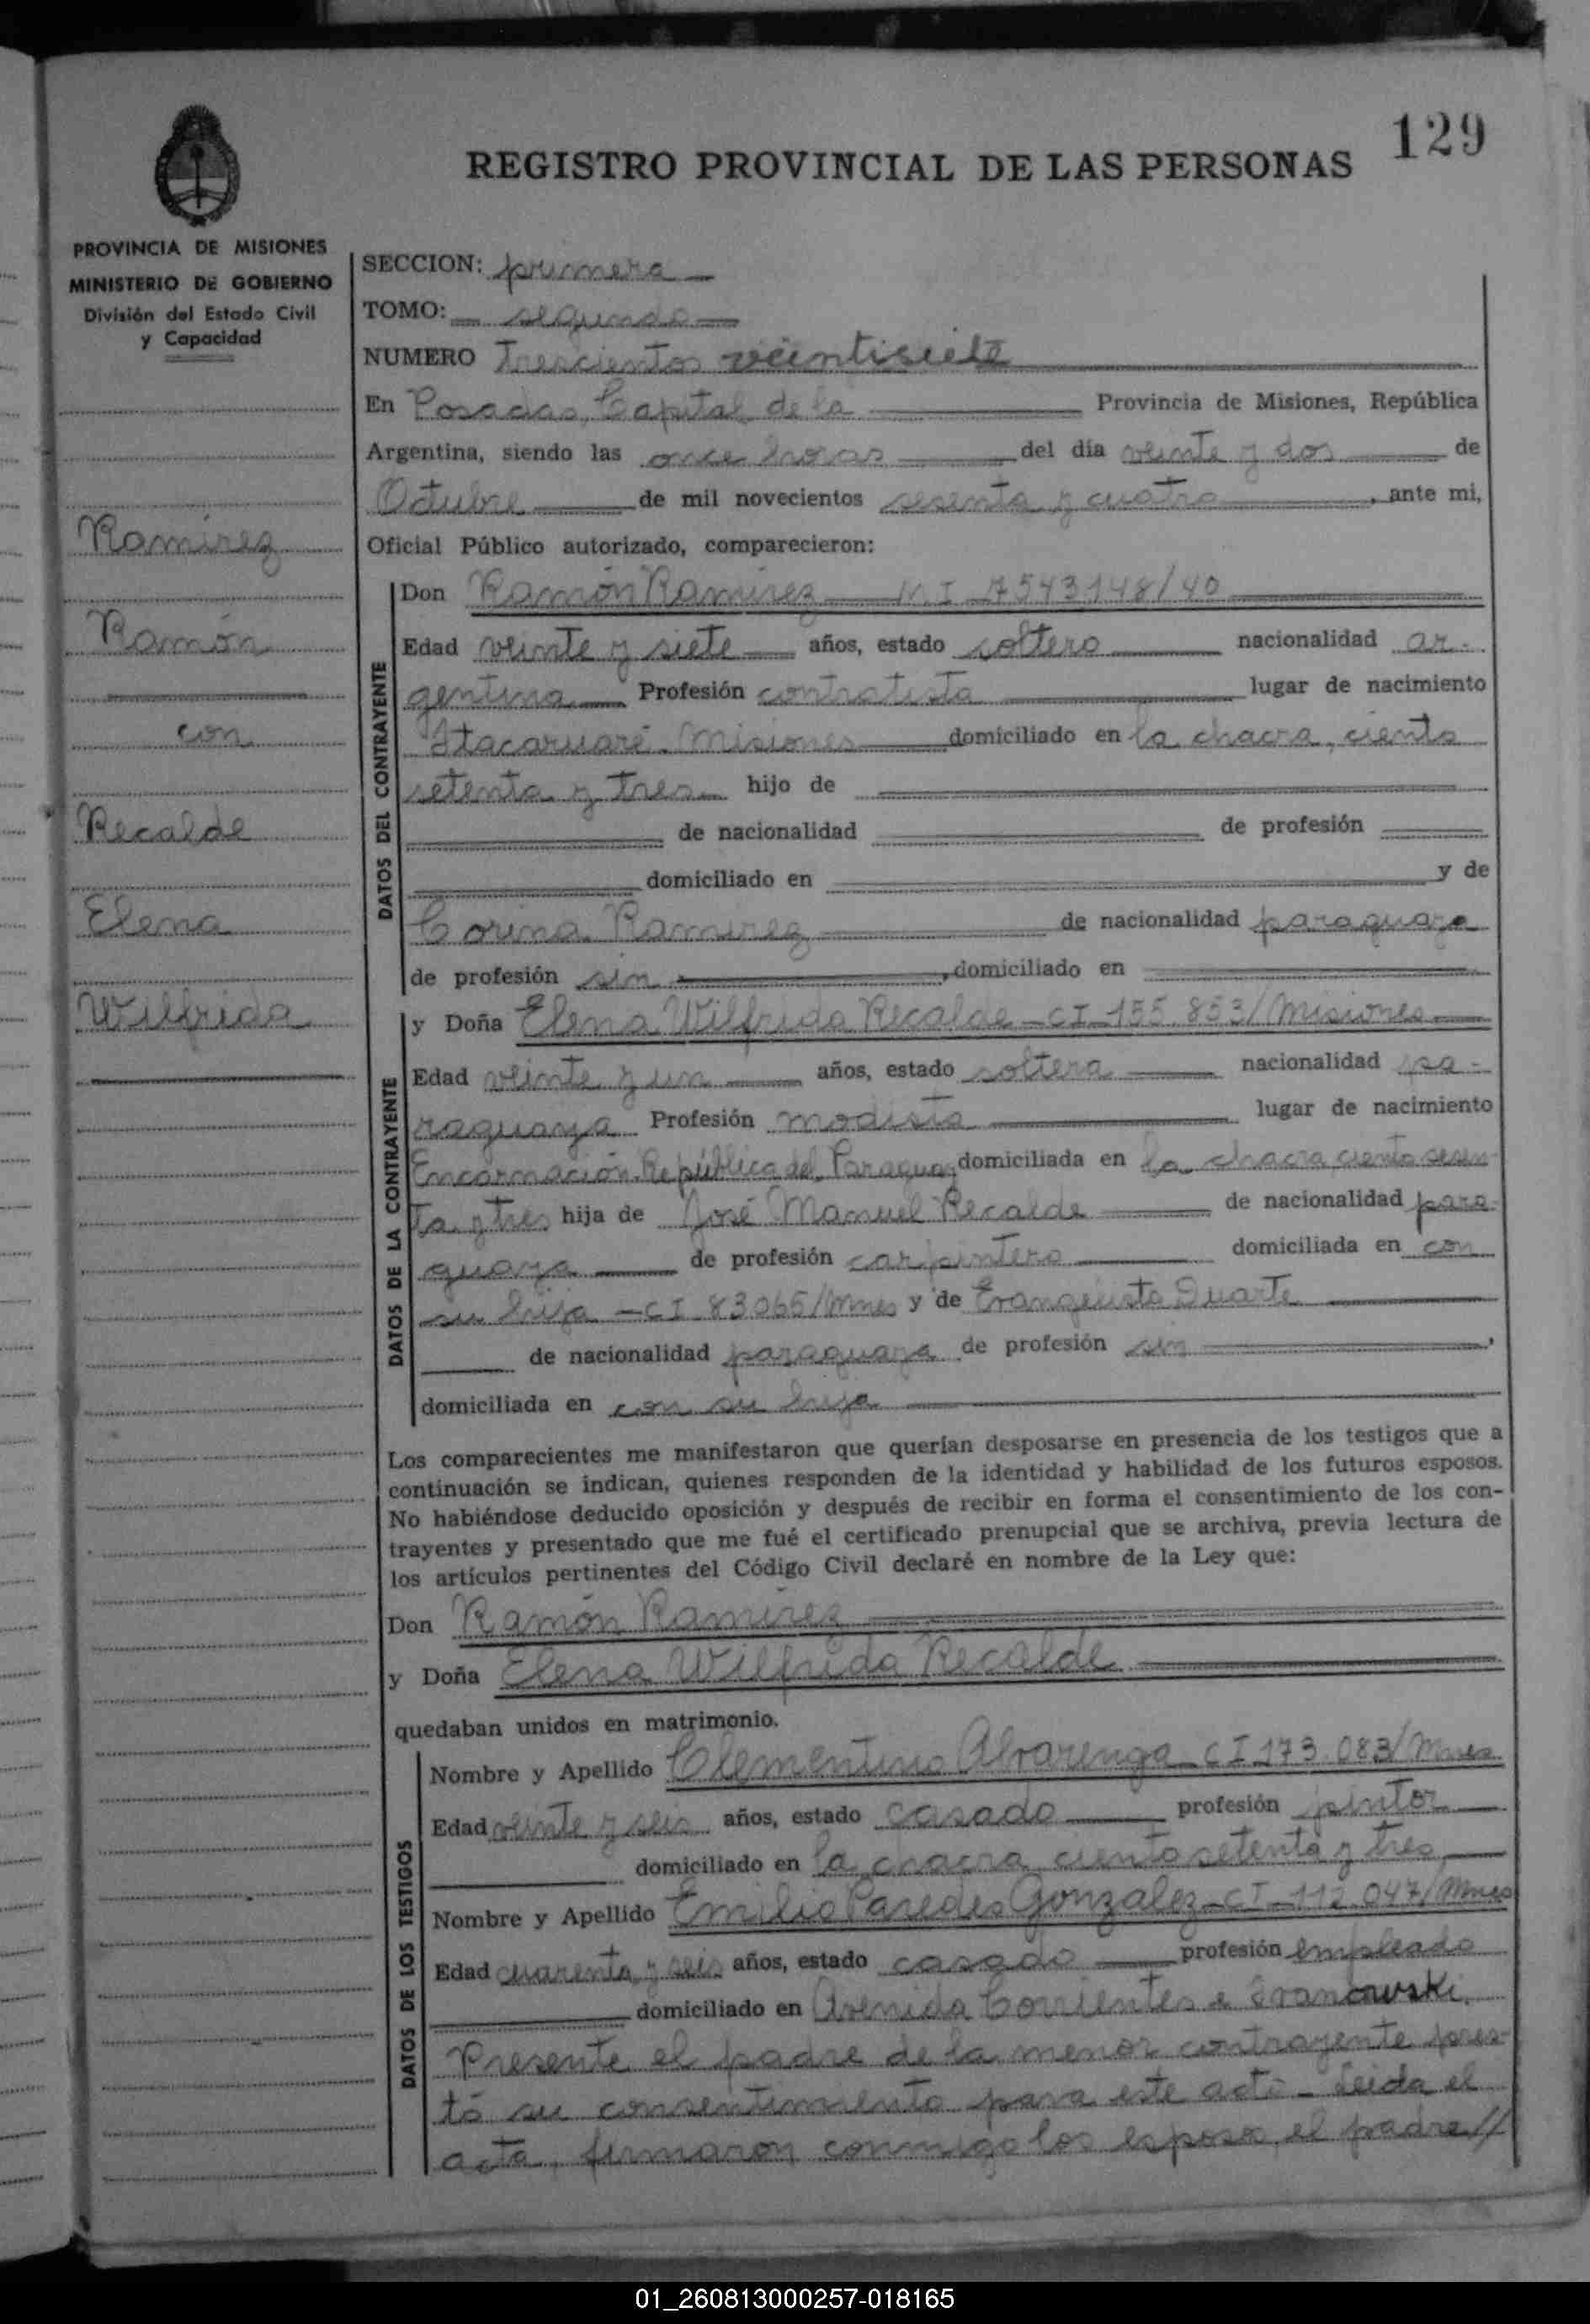 129
REGISTRO PROVINCIAL DE LAS PERSONAS
PROVINCIA DE MISIONES
MINISTERIO DE GOBIERNO
División del Estado Civil
y Capacidad
Ramírez
Ramón
con
Recalde
Elena
Wilfrida
SECCION: primera
TOMO: segundo
NUMERO Trescientos veintisiete
En Posadas, Capital de la Provincia de Misiones, República
Argentina, siendo las once horas del día veinte y dos de
Octubre de mil novecientos sesenta y cuatro, ante mi,
Oficial Público autorizado, comparecieron:
DATOS DEL CONTRAYENTE
Don Ramón Ramírez M I 7543148/40
Edad veinte y siete años, estado soltero nacionalidad ar-
gentina Profesión contratista lugar de nacimiento
Itacaruaré. Misiones domiciliado en la chacra, ciento
setenta y tres hijo de
de nacionalidad de profesión
domiciliado en y de
Corina Ramirez de nacionalidad paraguaya
de profesión sin, domiciliado en
DATOS DE LA CONTRAYENTE
y Doña Elena Wilfrida Recalde - CI 155.853/Misiones
Edad veinte y un años, estado soltera nacionalidad pa-
raguaya Profesión modista lugar de nacimiento
Encarnación. República del Paraguay domiciliada en la chacra ciento sesen-
ta y tres hija de José Manuel Recalde de nacionalidad para-
guaya de profesión carpintero domiciliada en con
su hija - CI 83.065/Mnes y de Evangelista Duarte
de nacionalidad paraguaya de profesión sin,
domiciliada en con su hija
Los comparecientes me manifestaron que querían desposarse en presencia de los testigos que a
continuación se indican, quienes responden de la identidad y habilidad de los futuros esposos.
No habiéndose deducido oposición y después de recibir en forma el consentimiento de los con-
trayentes y presentado que me fué el certificado prenupcial que se archiva, previa lectura de
los artículos pertinentes del Código Civil declaré en nombre de la Ley que:
Don Ramón Ramírez
y Doña Elena Wilfrida Recalde
quedaban unidos en matrimonio.
DATOS DE LOS TESTIGOS
Nombre y Apellido Clementino Alvarenga CI 173.083/Mnes
Edad veinte y seis años, estado casado profesión pintor
domiciliado en la chacra ciento setenta y tres
Nombre y Apellido Emilio Paredes Gonzalez - CI - 112.047/Mnes
Edad cuarenta y seis años, estado casado profesión empleado
domiciliado en Avenida Corrientes e
Presente el padre de la menor contrayente pres-
tó su consentimiento para este acto - Leida el
acta, firmaron conmigo los esposos, el padre//
01_260813000257-018165